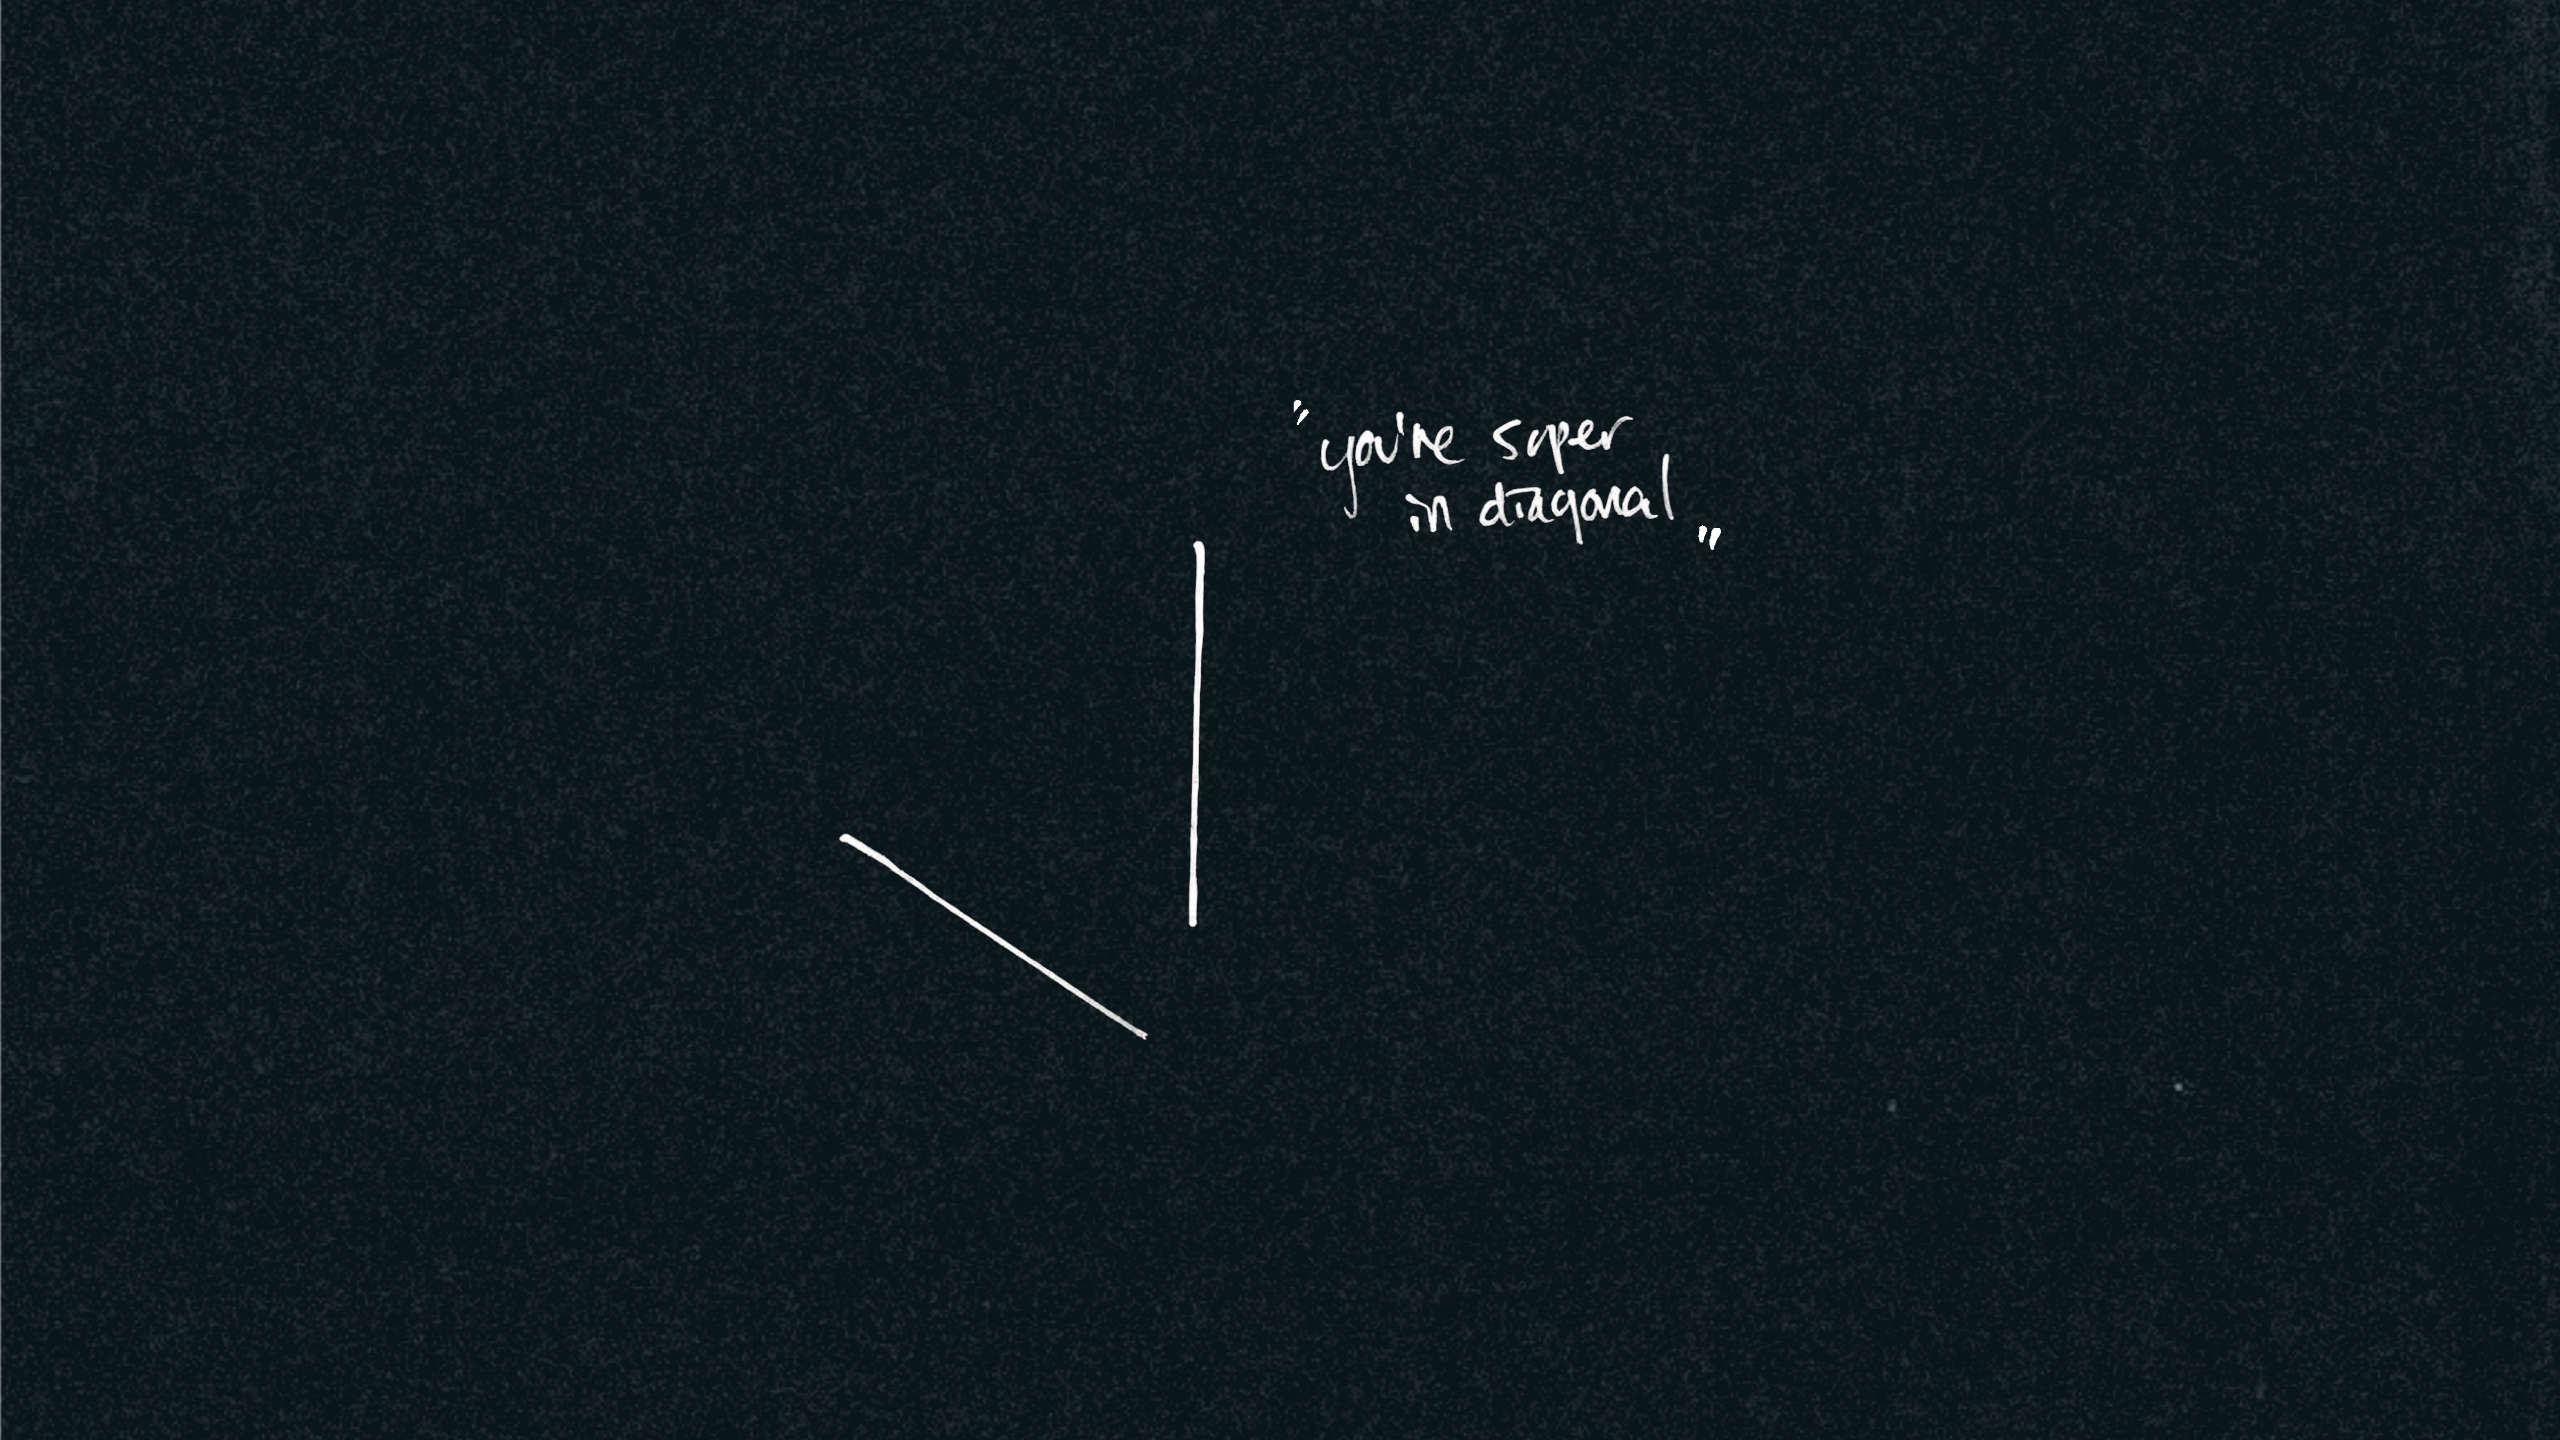 "you're super
in diagonal"